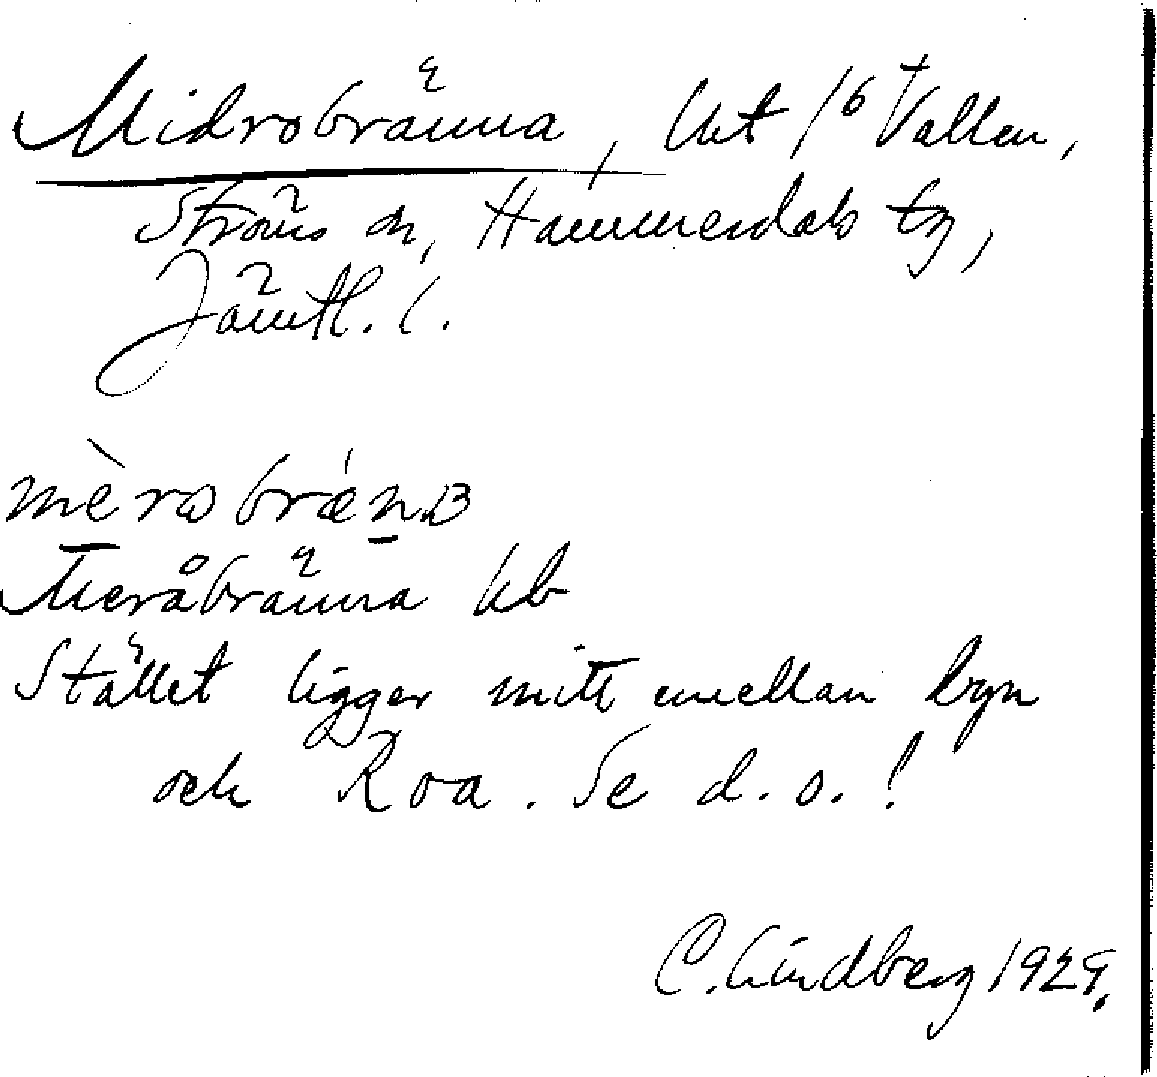 Midrobränna, Ut /6 Vallen,
Ströms sn, Hammerdals tg,
Jämtl. l.
mèrobrǽnB
Meråbränna kb
Stället ligger mitt emellan byn
och Roa. Se d. o. !
C. Lindberg 1929.